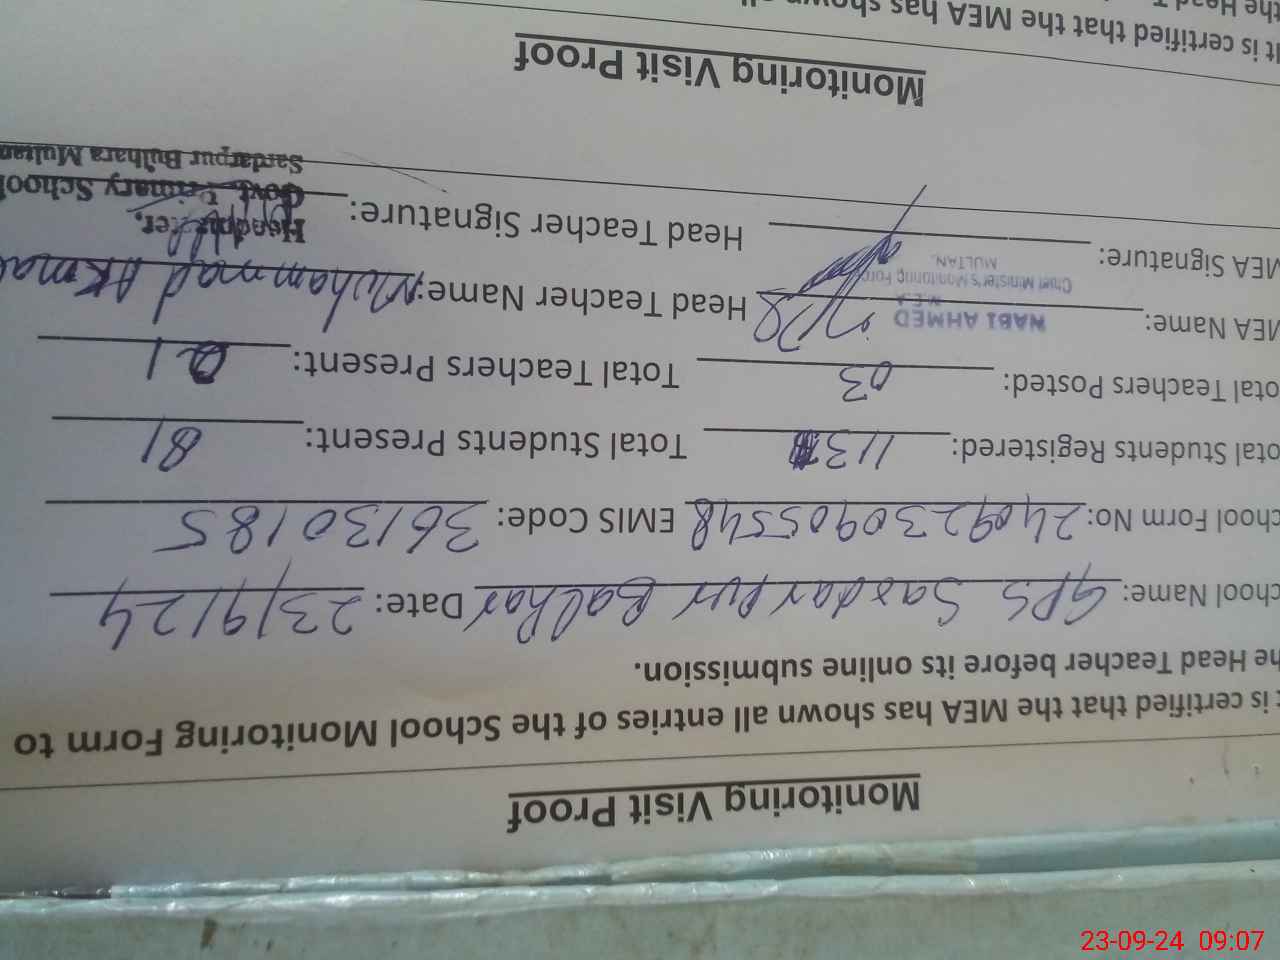 Monitoring Visit Proof
is certified that the MEA has shown all entries of the School Monitoring Form to
he Head Teacher before its online submission.
chool Name: GPS Sardar Pur Balhar Date: 23/9/24
chool Form No: 2409230905548 EMIS Code: 36130185
otal Students Registered: 113 Total Students Present: 81
otal Teachers Posted: 03 Total Teachers Present: 01
MEA Name: NABI AHMED Head Teacher Name: Muhammad Akma
M.E.A
Chief Minister's Monitoring Force
MULTAN.
MEA Signature: Head Teacher Signature:
Headmaster,
Govt. Primary School
Sardarpur Bulhara Multan
Monitoring Visit Proof
It is certified that the MEA has shown all
the Head T
23-09-24 09:07